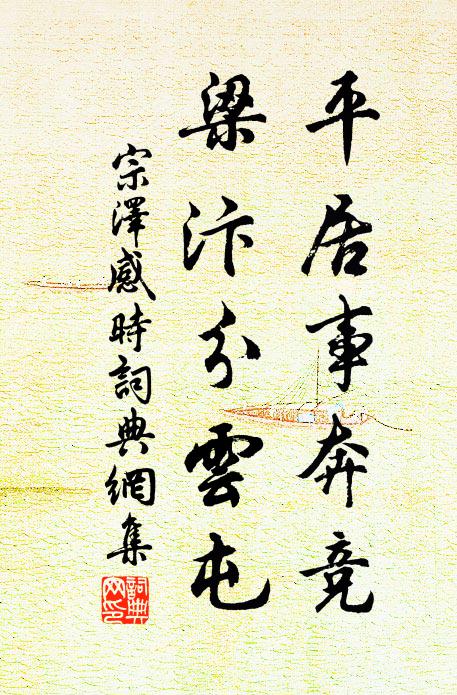 平居事奔竞
梁汴分雲屯
宗澤感時詞典網集
詞典
網印